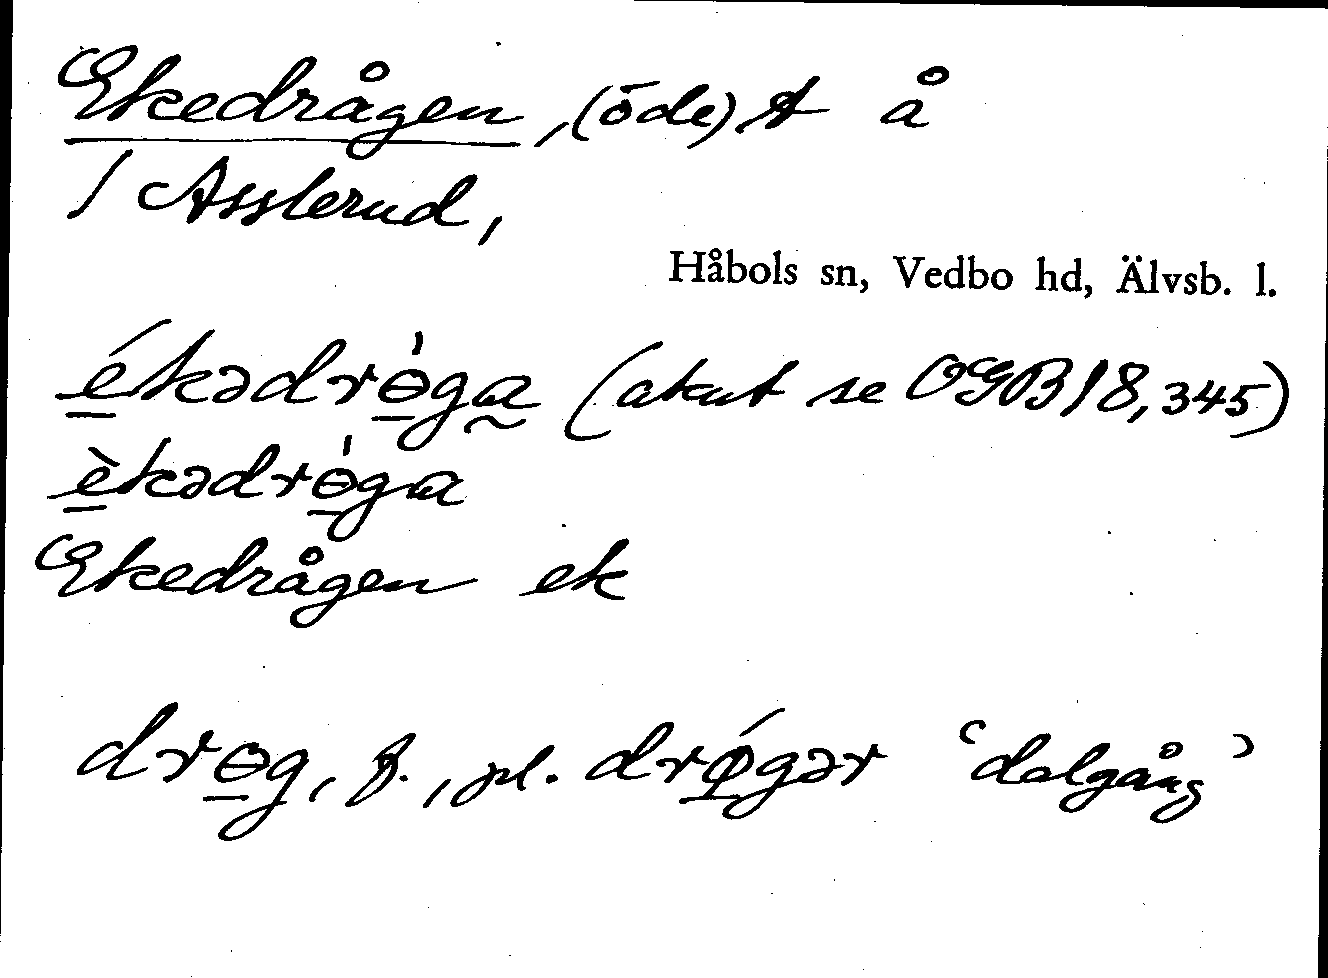 Ekedrågen, (öde) t å
1 Asslerud,
Håbols sn, Vedbo hd, Älvsb. l.
é̱kədrɵ̱̍ga̰ (akut se OGB 18, 345)
è̱kədrɵ̱̍ga
Ekedrågen ek
drɵ̱g, f., pl. drǿ̱gər ‘dalgång’